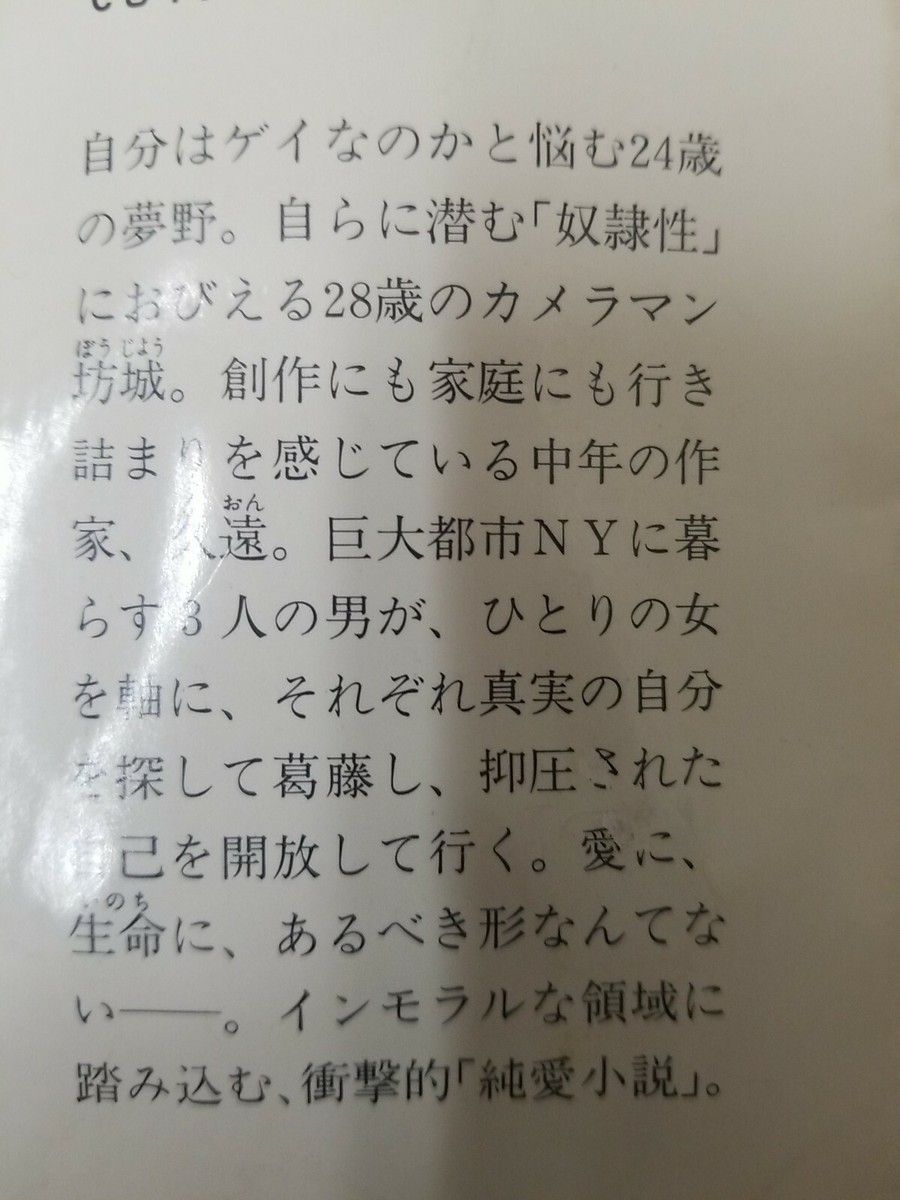 自分はゲイなのかと悩む24歳
の夢野。自らに潜む「奴隷性」
におびえる28歳のカメラマン
ぼうじょう
坊城。創作にも家庭にも行き
詰まりを感じている中年の作
おん
家、久遠。巨大都市ＮＹに暮
らす3人の男が、ひとりの女
を軸に、それぞれ真実の自分
を探して葛藤し、抑圧された
自己を開放して行く。愛に、
いのち
生命に、あるべき形なんてな
い――。インモラルな領域に
踏み込む、衝撃的「純愛小説」。